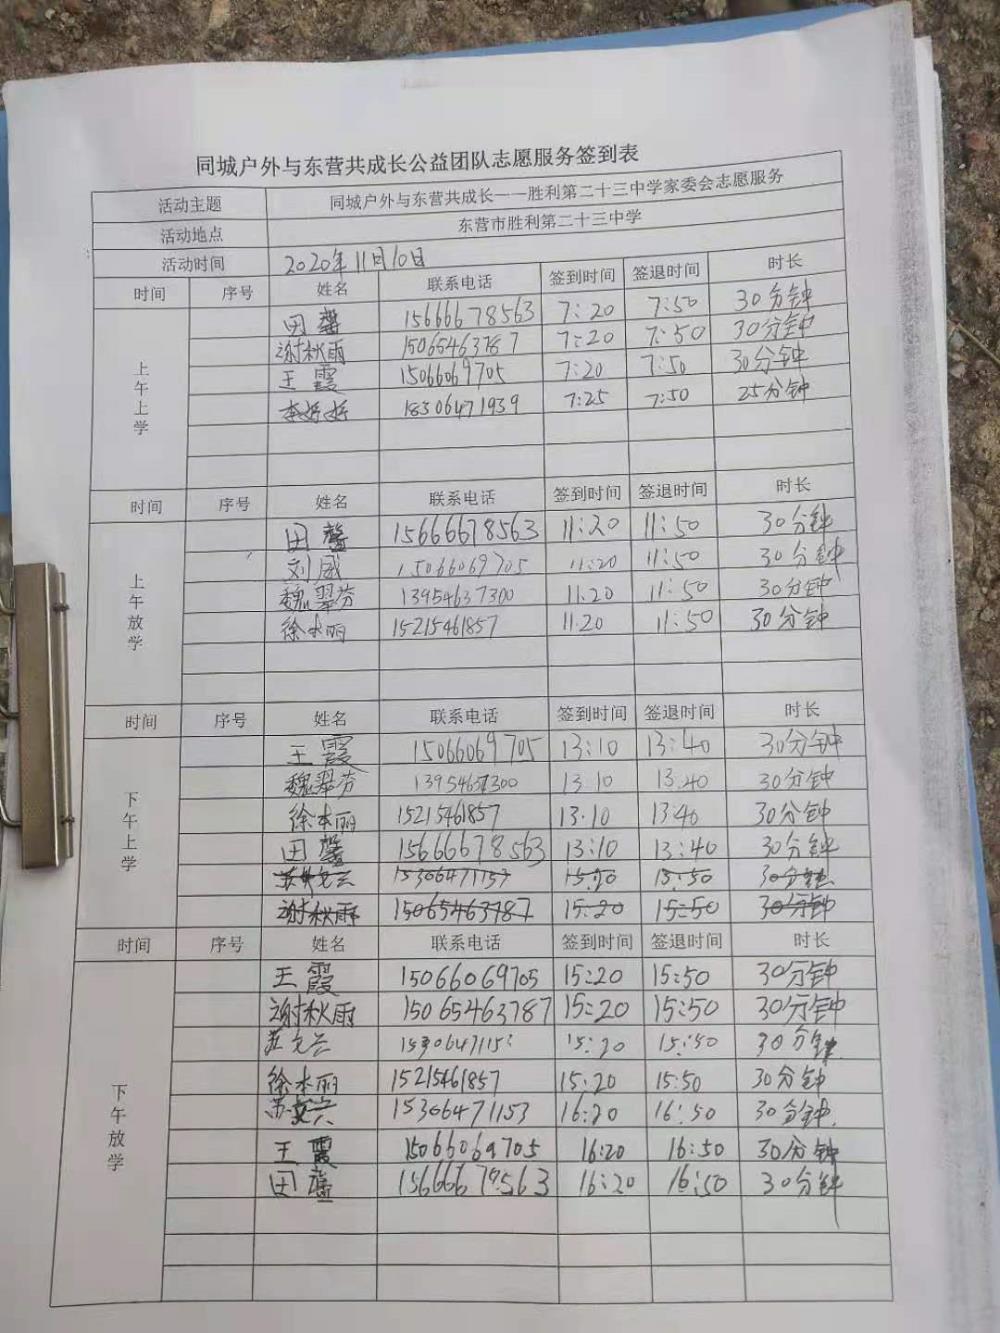 同城户外与东营共成长公益团队志愿服务签到表
活动主题 同城户外与东营共成长——胜利第二十三中学家委会志愿服务
活动地点 东营市胜利第二十三中学
活动时间 2020年11月10日
时间 序号 姓名 联系电话 签到时间 签退时间 时长
上午上学
田馨 15666678563 7:20 7:50 30分钟
谢秋雨 15065463787 7:20 7:50 30分钟
王霞 15066069705 7:20 7:50 30分钟
李 18306471939 7:25 7:50 25分钟
时间 序号 姓名 联系电话 签到时间 签退时间 时长
上午放学
田馨 15666678563 11:20 11:50 30分钟
刘威 15066069705 11:20 11:50 30分钟
魏翠芬 13954637300 11.20 11:50 30分钟
徐本丽 15215461857 11.20 11:50 30分钟
时间 序号 姓名 联系电话 签到时间 签退时间 时长
下午上学
王霞 15066069705 13:10 13:40 30分钟
魏翠芬 13954637300 13.10 13.40 30分钟
徐本丽 15215461857 13.10 13:40 30分钟
田馨 15666678563 13:10 13:40 30分钟
15306471153 15:20 15:50 30分钟
谢秋雨 15065463787 15:20 15:50 30分钟
时间 序号 姓名 联系电话 签到时间 签退时间 时长
下午放学
王霞 15066069705 15:20 15:50 30分钟
谢秋雨 15065463787 15:20 15:50 30分钟
15:20 15:50 30分钟
徐本丽 15215461857 15:20 15:50 30分钟
苏文兴 15306471153 16:20 16:50 30分钟
王霞 15066069705 16:20 16:50 30分钟
田馨 15666678563 16:20 16:50 30分钟